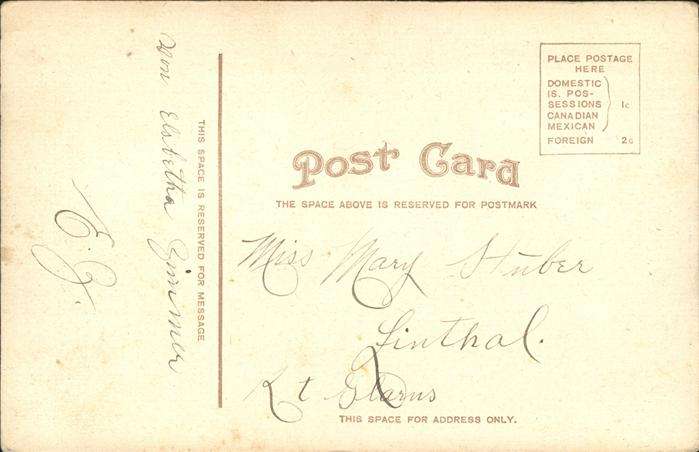 Von Elsbetha Zimmer
E. Z.
THIS SPACE IS RESERVED FOR MESSAGE
PLACE POSTAGE
HERE
DOMESTIC
IS. POS-
SESSIONS 1c
CANADIAN
MEXICAN
FOREIGN 2c
Post Card
THE SPACE ABOVE IS RESERVED FOR POSTMARK
Miss Mary Stüber
Linthal.
Kt Glarus
THIS SPACE FOR ADDRESS ONLY.